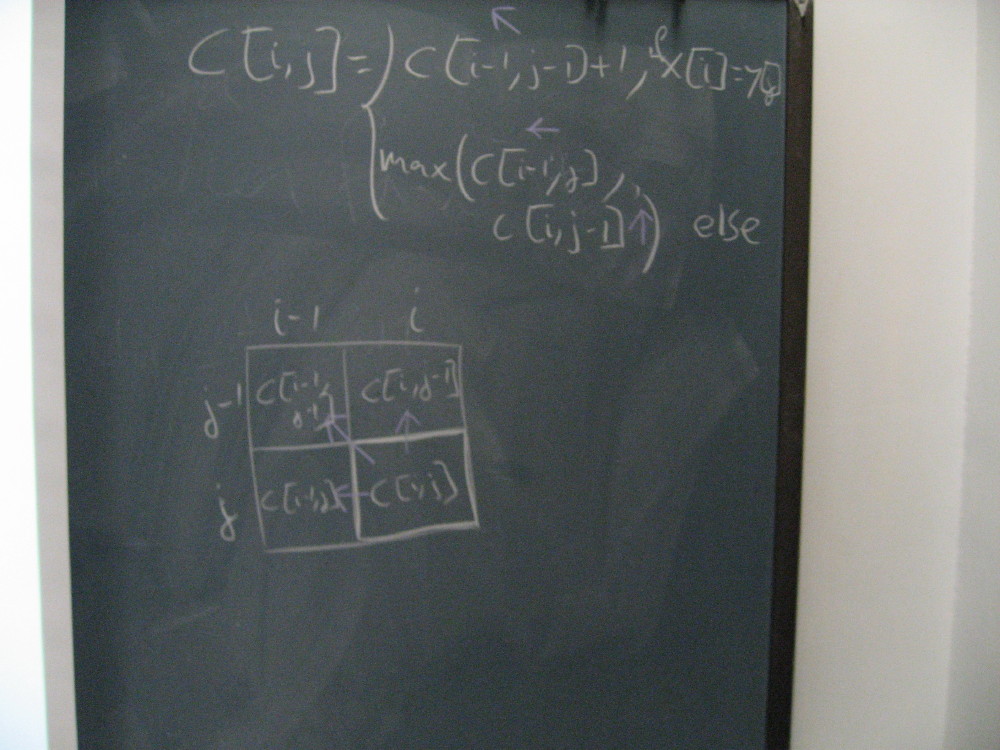 ↖
C[i,j]= { C[i-1,j-1)+1, if X[i]=y[j]
←
max(C[i-1,j],
C[i,j-1] ↑) else
i-1 i
j-1 C[i-1, j-1] C[i,j-1]
↖ ↑
j C[i-1,j] ← C[i,j]